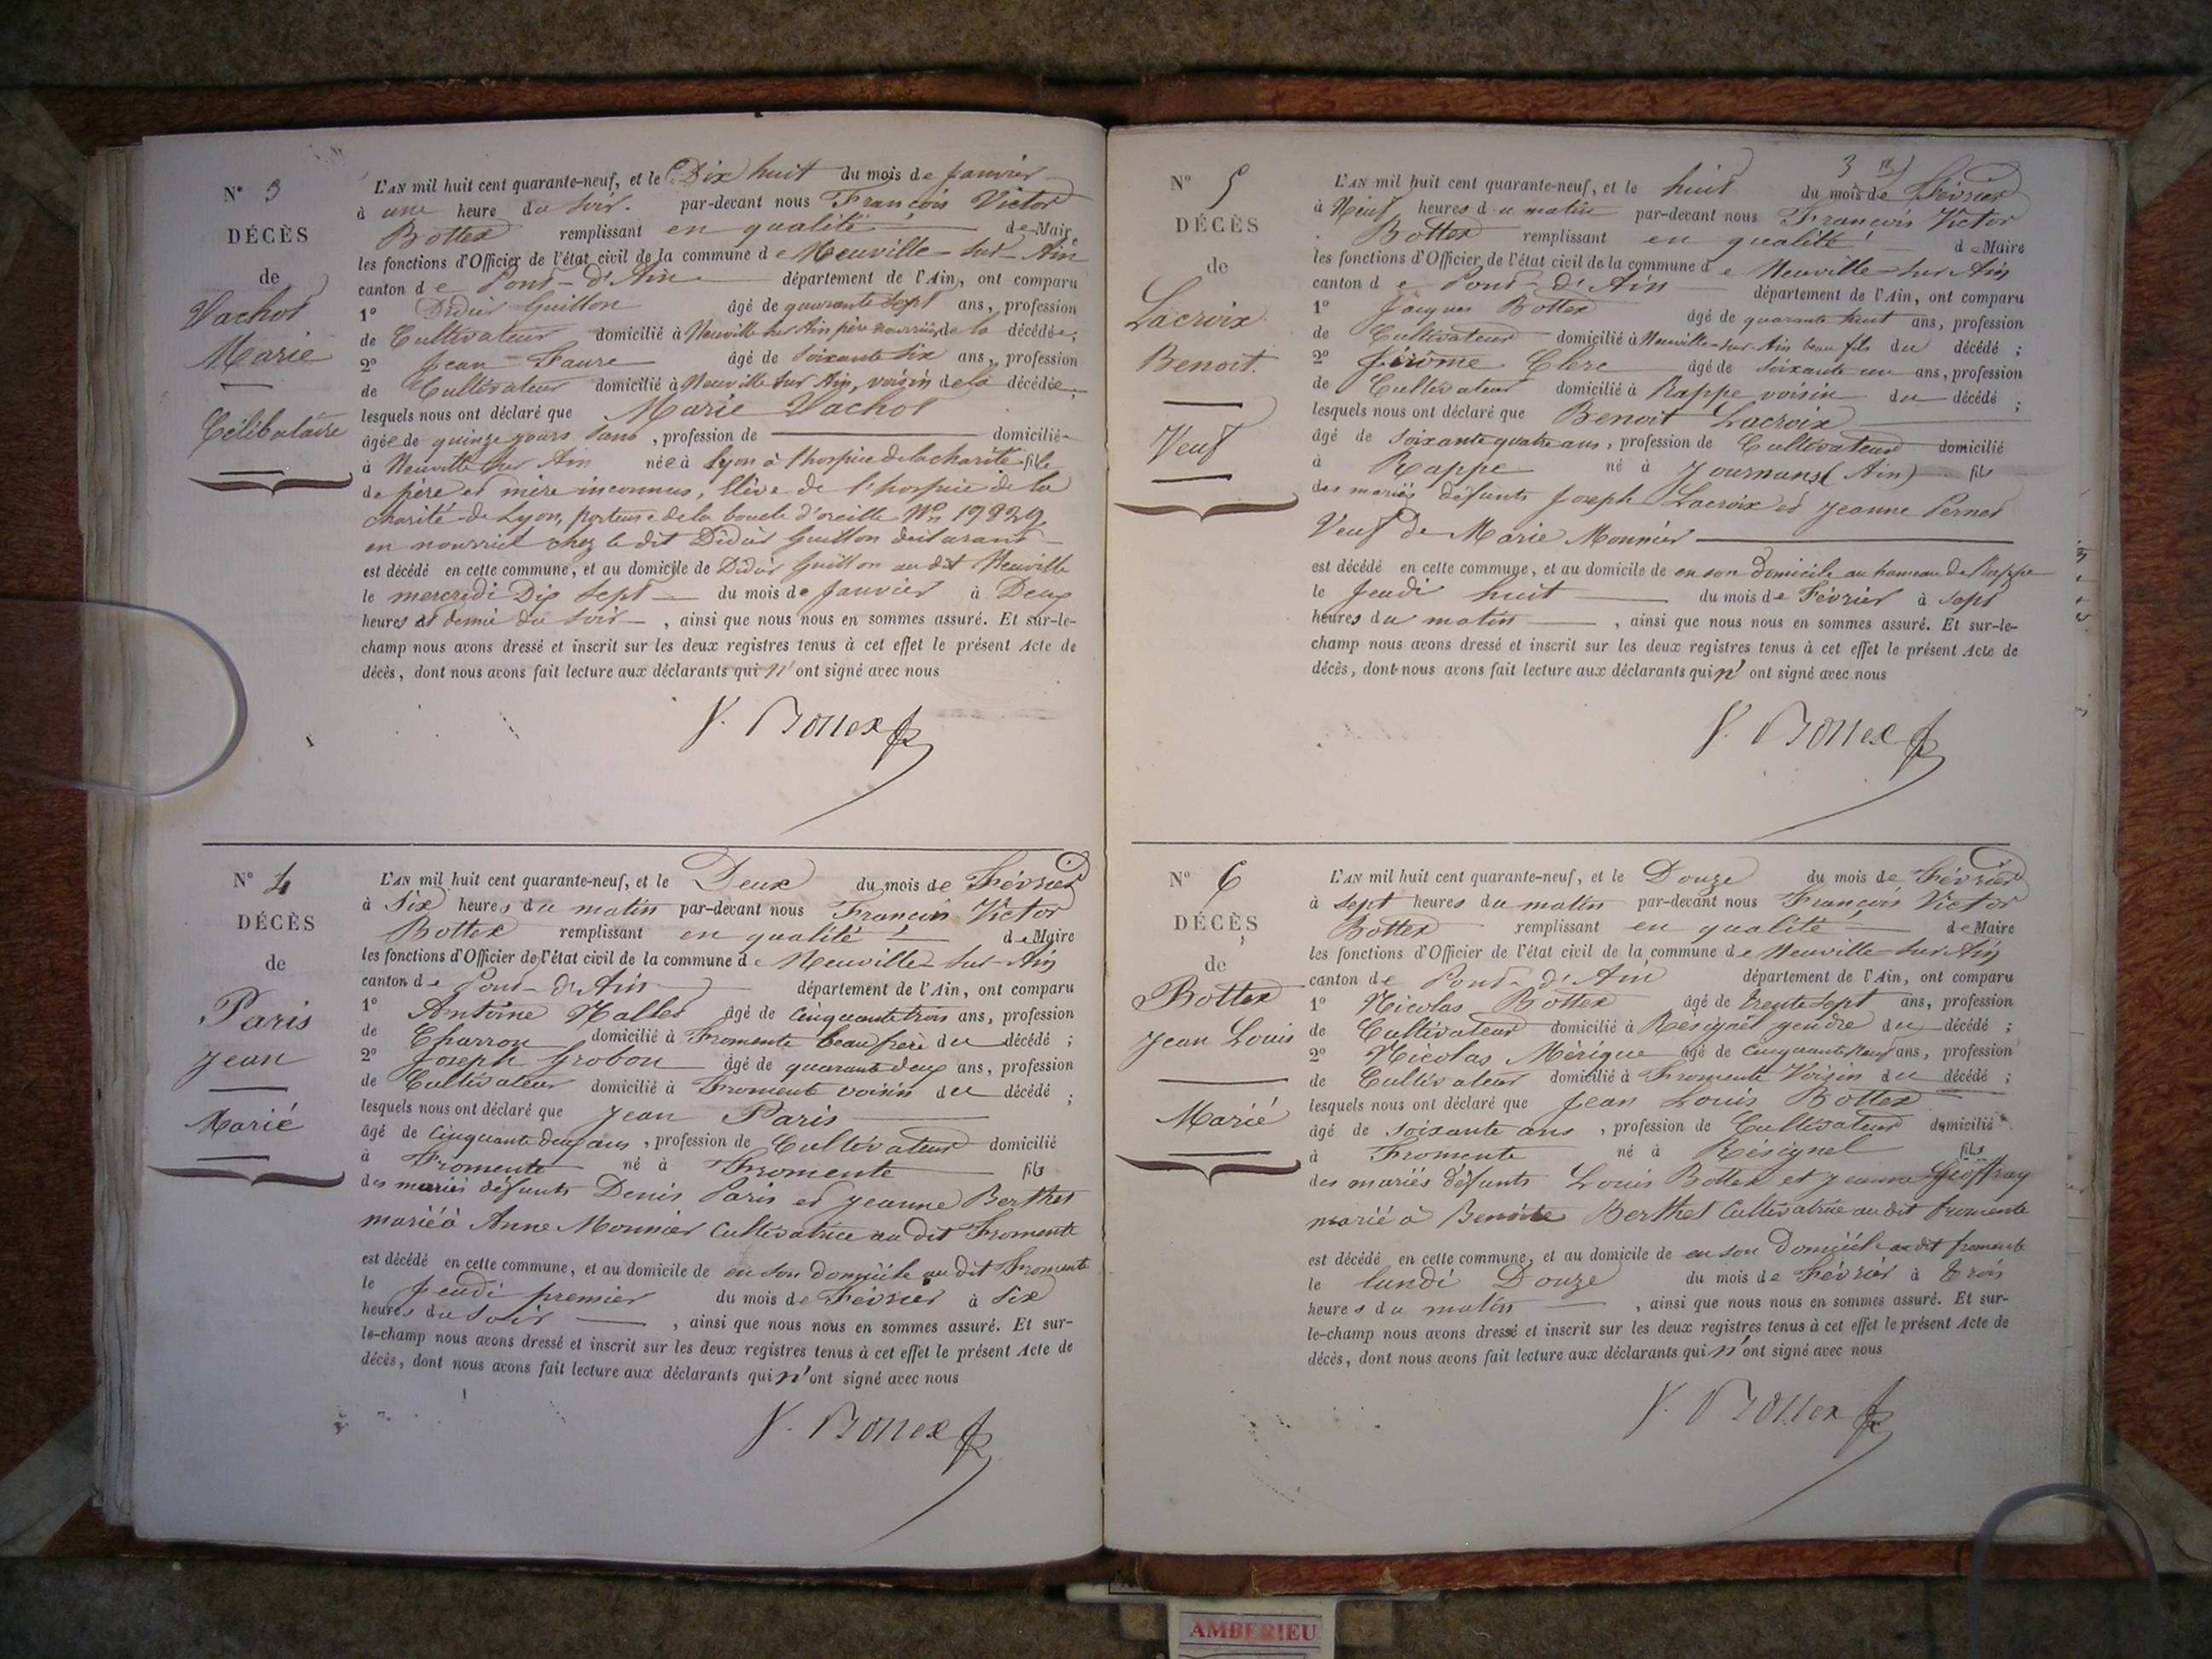 N° 3
DÉCÈS
de
Vachot
Marie
Célibataire
L'AN mil huit cent quarante-neuf, et le Dix huit du mois de Janvier
à une heure du soir. par-devant nous François Victor
Bottex remplissant en qualité de Maire
les fonctions d'Officier de l'état civil de la commune de Neuville-sur-Ain
canton de Pont-d'Ain département de l'Ain, ont comparu
1° Didier Guillon âgé de quarante sept ans, profession
de Cultivateur domicilié à Neuville sur Ain père nourricier de la décédée;
2° Jean Faure âgé de soixante six ans, profession
de Cultivateur domicilié à Neuville sur Ain, voisin de la décédée;
lesquels nous ont déclaré que Marie Vachot
âgée de quinze jours sans, profession de domiciliée
à Neuville sur Ain née à Lyon à l'hospice de la charité fille
de père et mère inconnus, Elève de l'hospice de la
charité de Lyon, porteuse de la boucle d'oreille N° 19829
en nourrice chez le dit Didier Guillon déclarant
est décédé en cette commune, et au domicile de Didier Guillon au dit Neuville
le mercredi Dix Sept du mois de Janvier à Deux
heures et demie du soir, ainsi que nous nous en sommes assuré. Et sur-le-
champ nous avons dressé et inscrit sur les deux registres tenus à cet effet le présent Acte de
décès, dont nous avons fait lecture aux déclarants qui n'ont signé avec nous
V. Bottex
N° 4
DÉCÈS
de
Paris
Jean
Marié
L'AN mil huit cent quarante-neuf, et le Deux du mois de Février
à Six heures du matin par-devant nous François Victor
Bottex remplissant en qualité de Maire
les fonctions d'Officier de l'état civil de la commune de Neuville-sur-Ain
canton de Pont-d'Ain département de l'Ain, ont comparu
1° Antoine Nallet âgé de cinquante trois ans, profession
de Charron domicilié à Fromente beau frère du décédé;
2° Joseph Grobon âgé de quarante deux ans, profession
de Cultivateur domicilié à Fromente voisin du décédé;
lesquels nous ont déclaré que Jean Paris
âgé de cinquante deux ans, profession de Cultivateur domicilié
à Fromente né à Fromente fils
des mariés défunts Denis Paris et Jeanne Berthet
marié à Anne Monnier Cultivatrice au dit Fromente
est décédé en cette commune, et au domicile de en son domicile au dit Fromente
le Jeudi premier du mois de Février à Six
heures du soir, ainsi que nous nous en sommes assuré. Et sur-
le-champ nous avons dressé et inscrit sur les deux registres tenus à cet effet le présent Acte de
décès, dont nous avons fait lecture aux déclarants qui n'ont signé avec nous
V. Bottex
3
N° 5
DÉCÈS
de
Lacroix
Benoit.
Veuf
L'AN mil huit cent quarante-neuf, et le huit du mois de Février
à Neuf heures du matin par-devant nous François Victor
Bottex remplissant en qualité de Maire
les fonctions d'Officier de l'état civil de la commune de Neuville-sur Ain
canton de Pont-d'Ain département de l'Ain, ont comparu
1° Jacques Bottex âgé de quarante huit ans, profession
de Cultivateur domicilié à Neuville-sur-Ain beau fils du décédé;
2° Jérôme Clerc âgé de soixante un ans, profession
de Cultivateur domicilié à Rappe voisin du décédé;
lesquels nous ont déclaré que Benoit Lacroix
âgé de soixante quatre ans, profession de Cultivateur domicilié
à Rappe né à Journans (Ain) fils
des mariés défunts Joseph Lacroix et Jeanne Pernet
Veuf de Marie Monnier
est décédé en cette commune, et au domicile de en son domicile au hameau de Rappe
le Jeudi huit du mois de Février à sept
heures du matin, ainsi que nous nous en sommes assuré. Et sur-le-
champ nous avons dressé et inscrit sur les deux registres tenus à cet effet le présent Acte de
décès, dont nous avons fait lecture aux déclarants qui n'ont signé avec nous
V. Bottex
N° 6
DÉCÈS
de
Bottex
Jean Louis
Marié
L'AN mil huit cent quarante-neuf, et le Douze du mois de Février
à sept heures du matin par-devant nous François Victor
Bottex remplissant en qualité de Maire
les fonctions d'Officier de l'état civil de la commune de Neuville-sur Ain
canton de Pont-d'Ain département de l'Ain, ont comparu
1° Nicolas Bottex âgé de trente sept ans, profession
de Cultivateur domicilié à Résignel gendre du décédé;
2° Nicolas Mérigue âgé de cinquante neuf ans, profession
de Cultivateur domicilié à Fromente Voisin du décédé;
lesquels nous ont déclaré que Jean Louis Bottex
âgé de soixante ans, profession de Cultivateur domicilié
à Fromente né à Résignel fils
des mariés défunts Louis Bottex et Jeanne Geoffray
marié à Benoite Berthet Cultivatrice au dit fromente
est décédé en cette commune, et au domicile de en son Domicile au dit fromente
le lundi Douze du mois de Février à trois
heures du matin, ainsi que nous nous en sommes assuré. Et sur-
le-champ nous avons dressé et inscrit sur les deux registres tenus à cet effet le présent Acte de
décès, dont nous avons fait lecture aux déclarants qui n'ont signé avec nous
V. Bottex
AMBERIEU